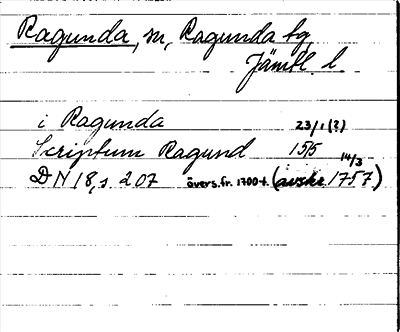 Ragunda, sn, Ragunda tg,
Jämtl. l.
i Ragunda 23/1 (?)
Scriptum Ragund 1515
DN 18, s. 207 övers. fr. 1700-t. (avskr. 14/3 1757)